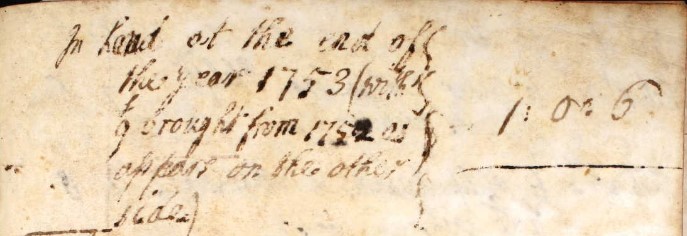 In hand at the end of
the year 1753 (with
yt brought from 1752 as
appears on the other
side)
1: 0: 6